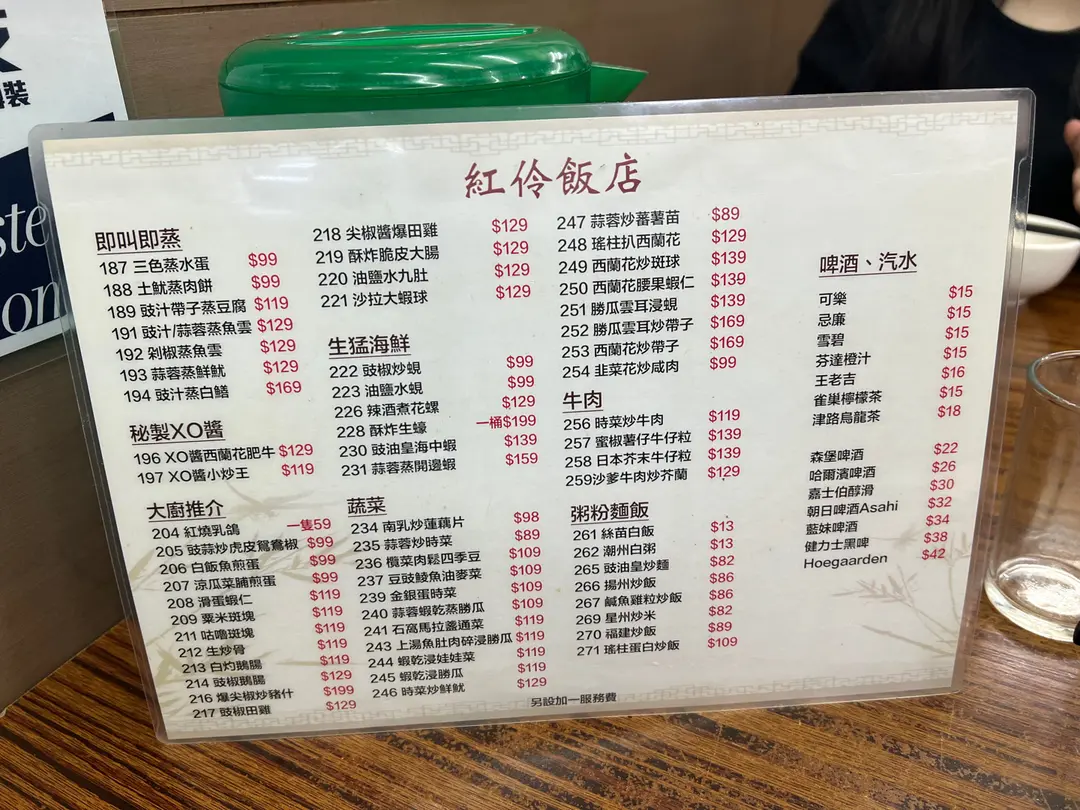 裝
ste
on
紅伶飯店
即叫即蒸
187 三色蒸水蛋 $99
188 土魷蒸肉餅 $99
189 豉汁帶子蒸豆腐 $119
191 豉汁/蒜蓉蒸魚雲 $129
192 剁椒蒸魚雲 $129
193 蒜蓉蒸鮮魷 $129
194 豉汁蒸白鱔 $169
秘製XO醬
196 XO醬西蘭花肥牛 $129
197 XO醬小炒王 $119
大廚推介
204 紅燒乳鴿 一隻59
205 豉蒜炒虎皮鴛鴦椒 $99
206 白飯魚煎蛋 $99
207 涼瓜菜脯煎蛋 $99
208 滑蛋蝦仁 $119
209 粟米斑塊 $119
211 咕嚕斑塊 $119
212 生炒骨 $119
213 白灼鵝腸 $119
214 豉椒鵝腸 $129
216 爆尖椒炒豬什 $199
217 豉椒田雞 $129
218 尖椒醬爆田雞 $129
219 酥炸脆皮大腸 $129
220 油鹽水九肚 $129
221 沙拉大蝦球 $129
生猛海鮮
222 豉椒炒蜆 $99
223 油鹽水蜆 $99
226 辣酒煮花螺 $129
228 酥炸生蠔 一桶$199
230 豉油皇海中蝦 $139
231 蒜蓉蒸開邊蝦 $159
蔬菜
234 南乳炒蓮藕片 $98
235 蒜蓉炒時菜 $89
236 欖菜肉鬆四季豆 $109
237 豆豉鯪魚油麥菜 $109
239 金銀蛋時菜 $109
240 蒜蓉蝦乾蒸勝瓜 $109
241 石窩馬拉盞通菜 $119
243 上湯魚肚肉碎浸勝瓜 $119
244 蝦乾浸娃娃菜 $119
245 蝦乾浸勝瓜 $119
246 時菜炒鮮魷 $129
247 蒜蓉炒蕃薯苗 $89
248 瑤柱扒西蘭花 $129
249 西蘭花炒斑球 $139
250 西蘭花腰果蝦仁 $139
251 勝瓜雲耳浸蜆 $139
252 勝瓜雲耳炒帶子 $169
253 西蘭花炒帶子 $169
254 韭菜花炒咸肉 $99
牛肉
256 時菜炒牛肉 $119
257 蜜椒薯仔牛仔粒 $139
258 日本芥末牛仔粒 $139
259沙爹牛肉炒芥蘭 $129
粥粉麵飯
261 絲苗白飯 $13
262 潮州白粥 $13
265 豉油皇炒麵 $82
266 揚州炒飯 $86
267 鹹魚雞粒炒飯 $86
269 星州炒米 $82
270 福建炒飯 $89
271 瑤柱蛋白炒飯 $109
啤酒、汽水
可樂 $15
忌廉 $15
雪碧 $15
芬達橙汁 $15
王老吉 $16
雀巢檸檬茶 $15
津路烏龍茶 $18
森堡啤酒 $22
哈爾濱啤酒 $26
嘉士伯醇滑 $30
朝日啤酒Asahi $32
藍妹啤酒 $34
健力士黑啤 $38
Hoegaarden $42
另設加一服務費